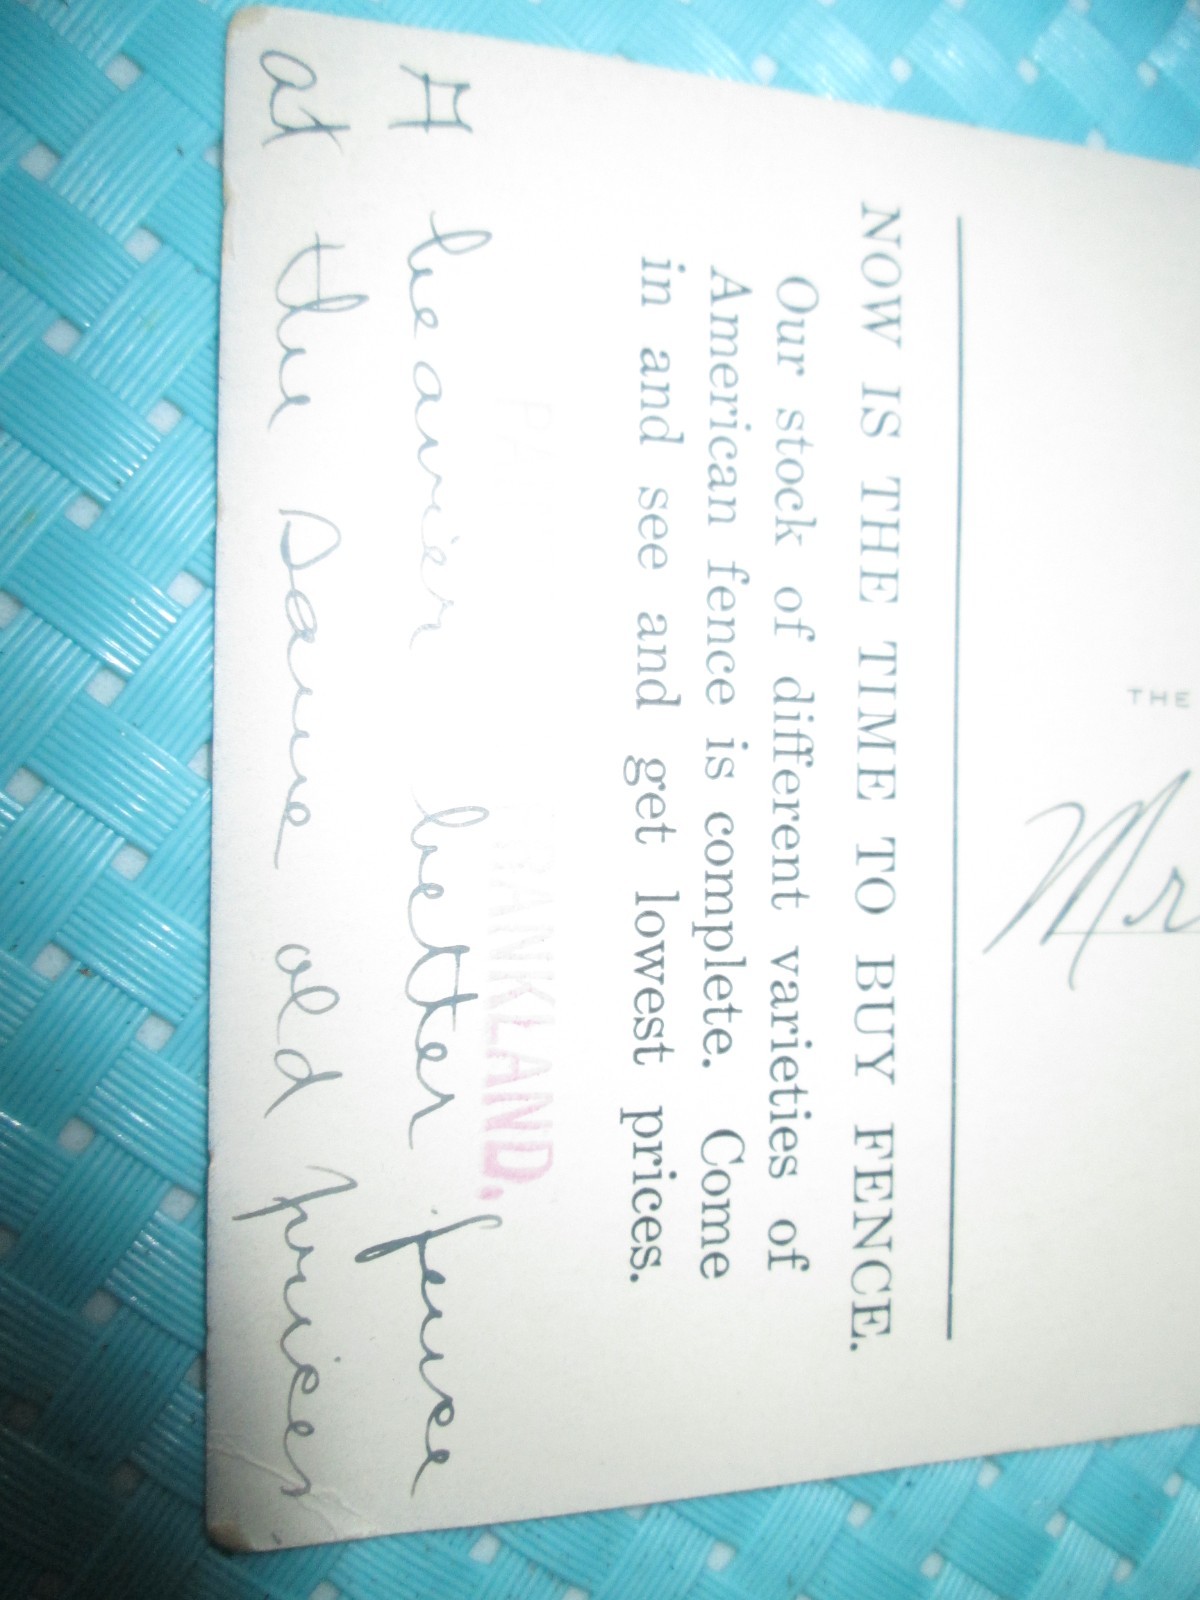 THE
Mr
NOW IS THE TIME TO BUY FENCE.
Our stock of different varieties of
American fence is complete. Come
in and see and get lowest prices.
RANKLAND.
A heavier better fence
at the same old prices